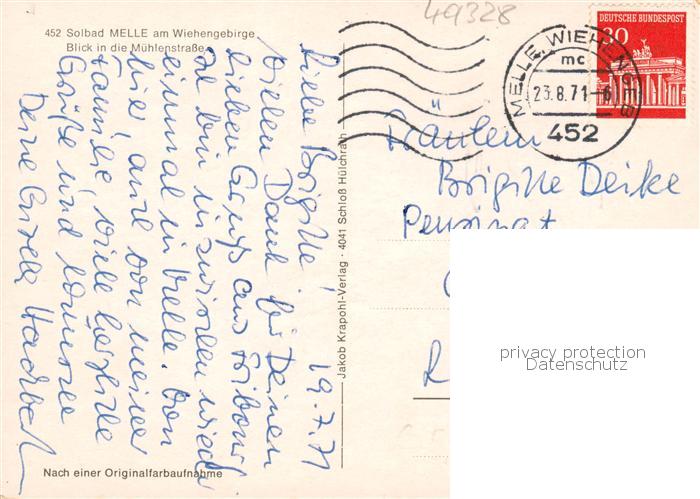 49328
452 Solbad MELLE am Wiehengebirge
Blick in die Mühlenstraße
DEUTSCHE BUNDESPOST
30
MELLE, WIEHENGEB
mc
23.8.71-6
452
19.7.71
Liebe Brigitte!
Vielen Dank für Deinen
lieben Gruß aus
bin inzwischen wieder
einmal in Melle. Von
hier aus von meiner
Familie viele herzliche
Grüße und
Deine Gisela
Jakob Krapohl-Verlag · 4041 Schloß Hülchrath
Fräulein
Brigitte Deike
Pensionat
R
privacy protection
Datenschutz
Nach einer Originalfarbaufnahme